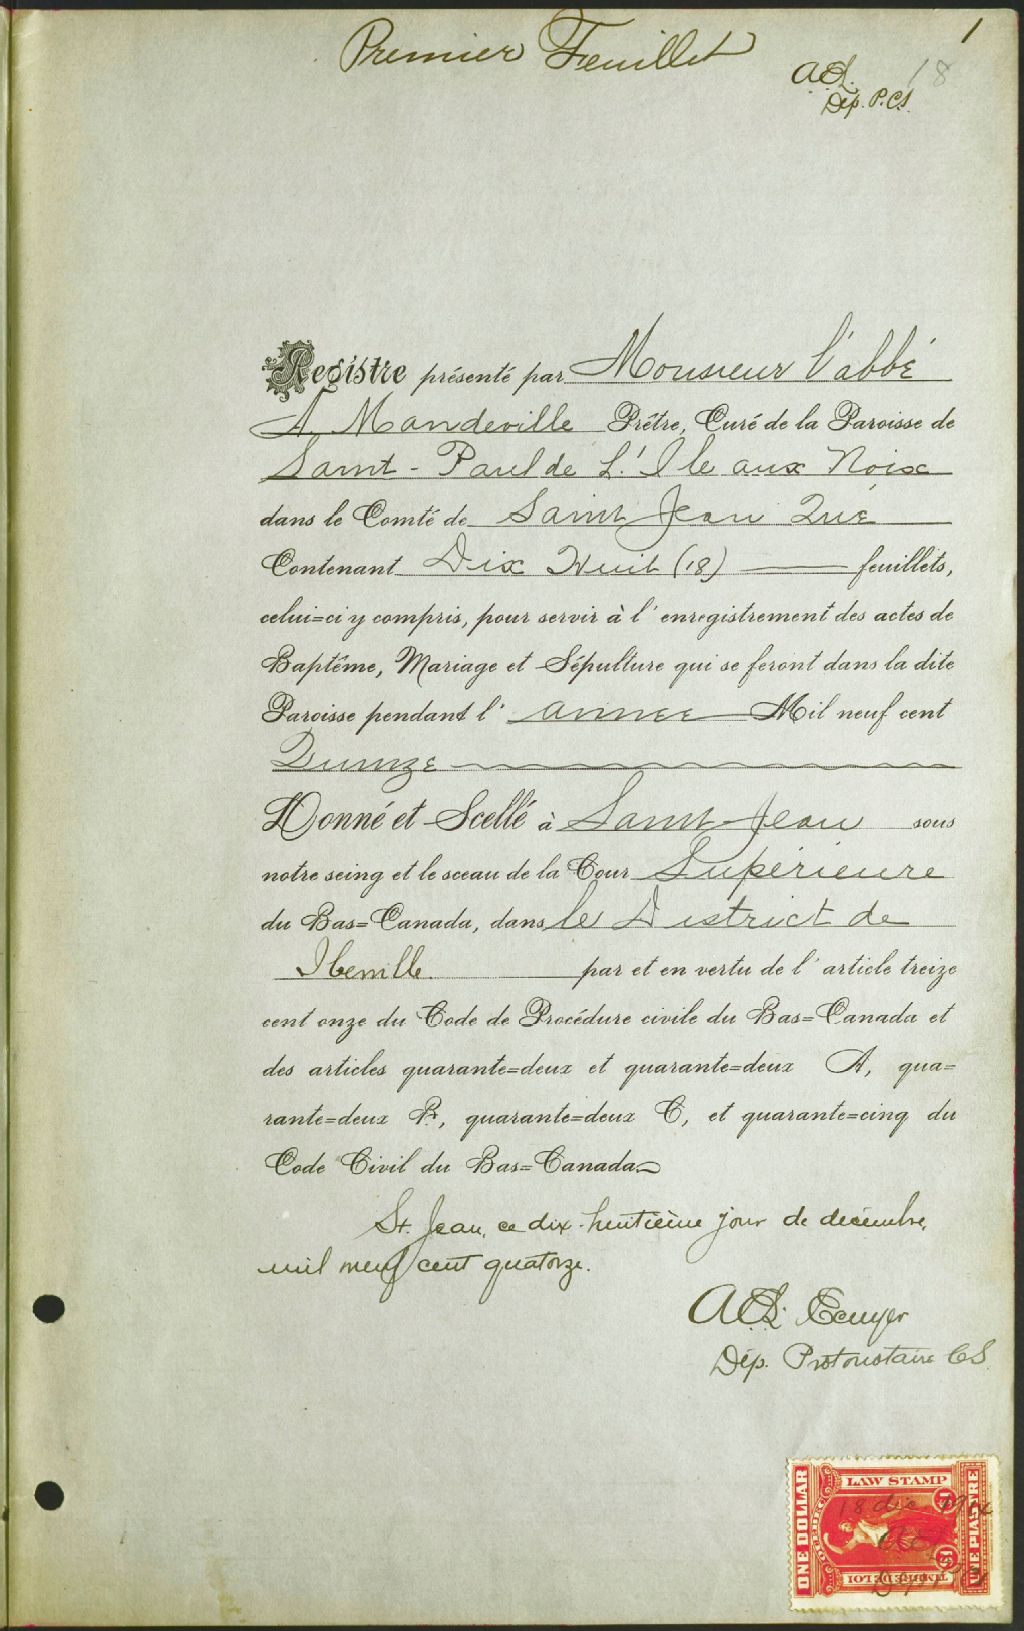 Premier Feuillet
1
18
Dép. P.C.S.
Registre présenté par Monsieur l'abbé
A Mandeville Prêtre, Curé de la Paroisse de
Saint-Paul de L'Ile aux Noix
dans le Comté de Saint Jean Qué
Contenant Dix Huit (18) feuillets,
celui=ci y compris, pour servir à l'enregistrement des actes de
Baptême, Mariage et Sépulture qui se feront dans la dite
Paroisse pendant l'année Mil neuf cent
Quinze
Donné et Scellé à Saint-Jean sous
notre seing et le sceau de la Cour Supérieure
du Bas=Canada, dans le District de
Iberville par et en vertu de l'article treize
cent onze du Code de Procédure civile du Bas=Canada et
des articles quarante=deux et quarante=deux A, qua=
rante=deux B, quarante=deux C, et quarante=cinq du
Code Civil du Bas=Canada
St. Jean, ce dix-huitième jour de décembre,
mil neuf cent quatorze.
Dép. Protonotaire C.S.
LAW STAMP
ONE DOLLAR
UNE PIASTRE
QUEBEC
TIMBRE DE LOI
18 dec. 1914